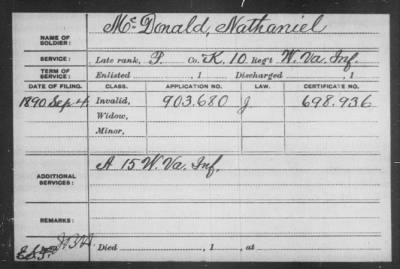 NAME OF SOLDIER: McDonald, Nathaniel
SERVICE: Late rank, P. Co. K, 10 Reg't W. Va. Inf.
TERM OF SERVICE: Enlisted , 1 Discharged , 1
DATE OF FILING. CLASS. APPLICATION NO. LAW. CERTIFICATE NO.
1890 Sep 4 Invalid, 903.680 J 698.936
Widow,
Minor,
ADDITIONAL SERVICES: A 15 W. Va. Inf.
REMARKS:
Died , 1 , at